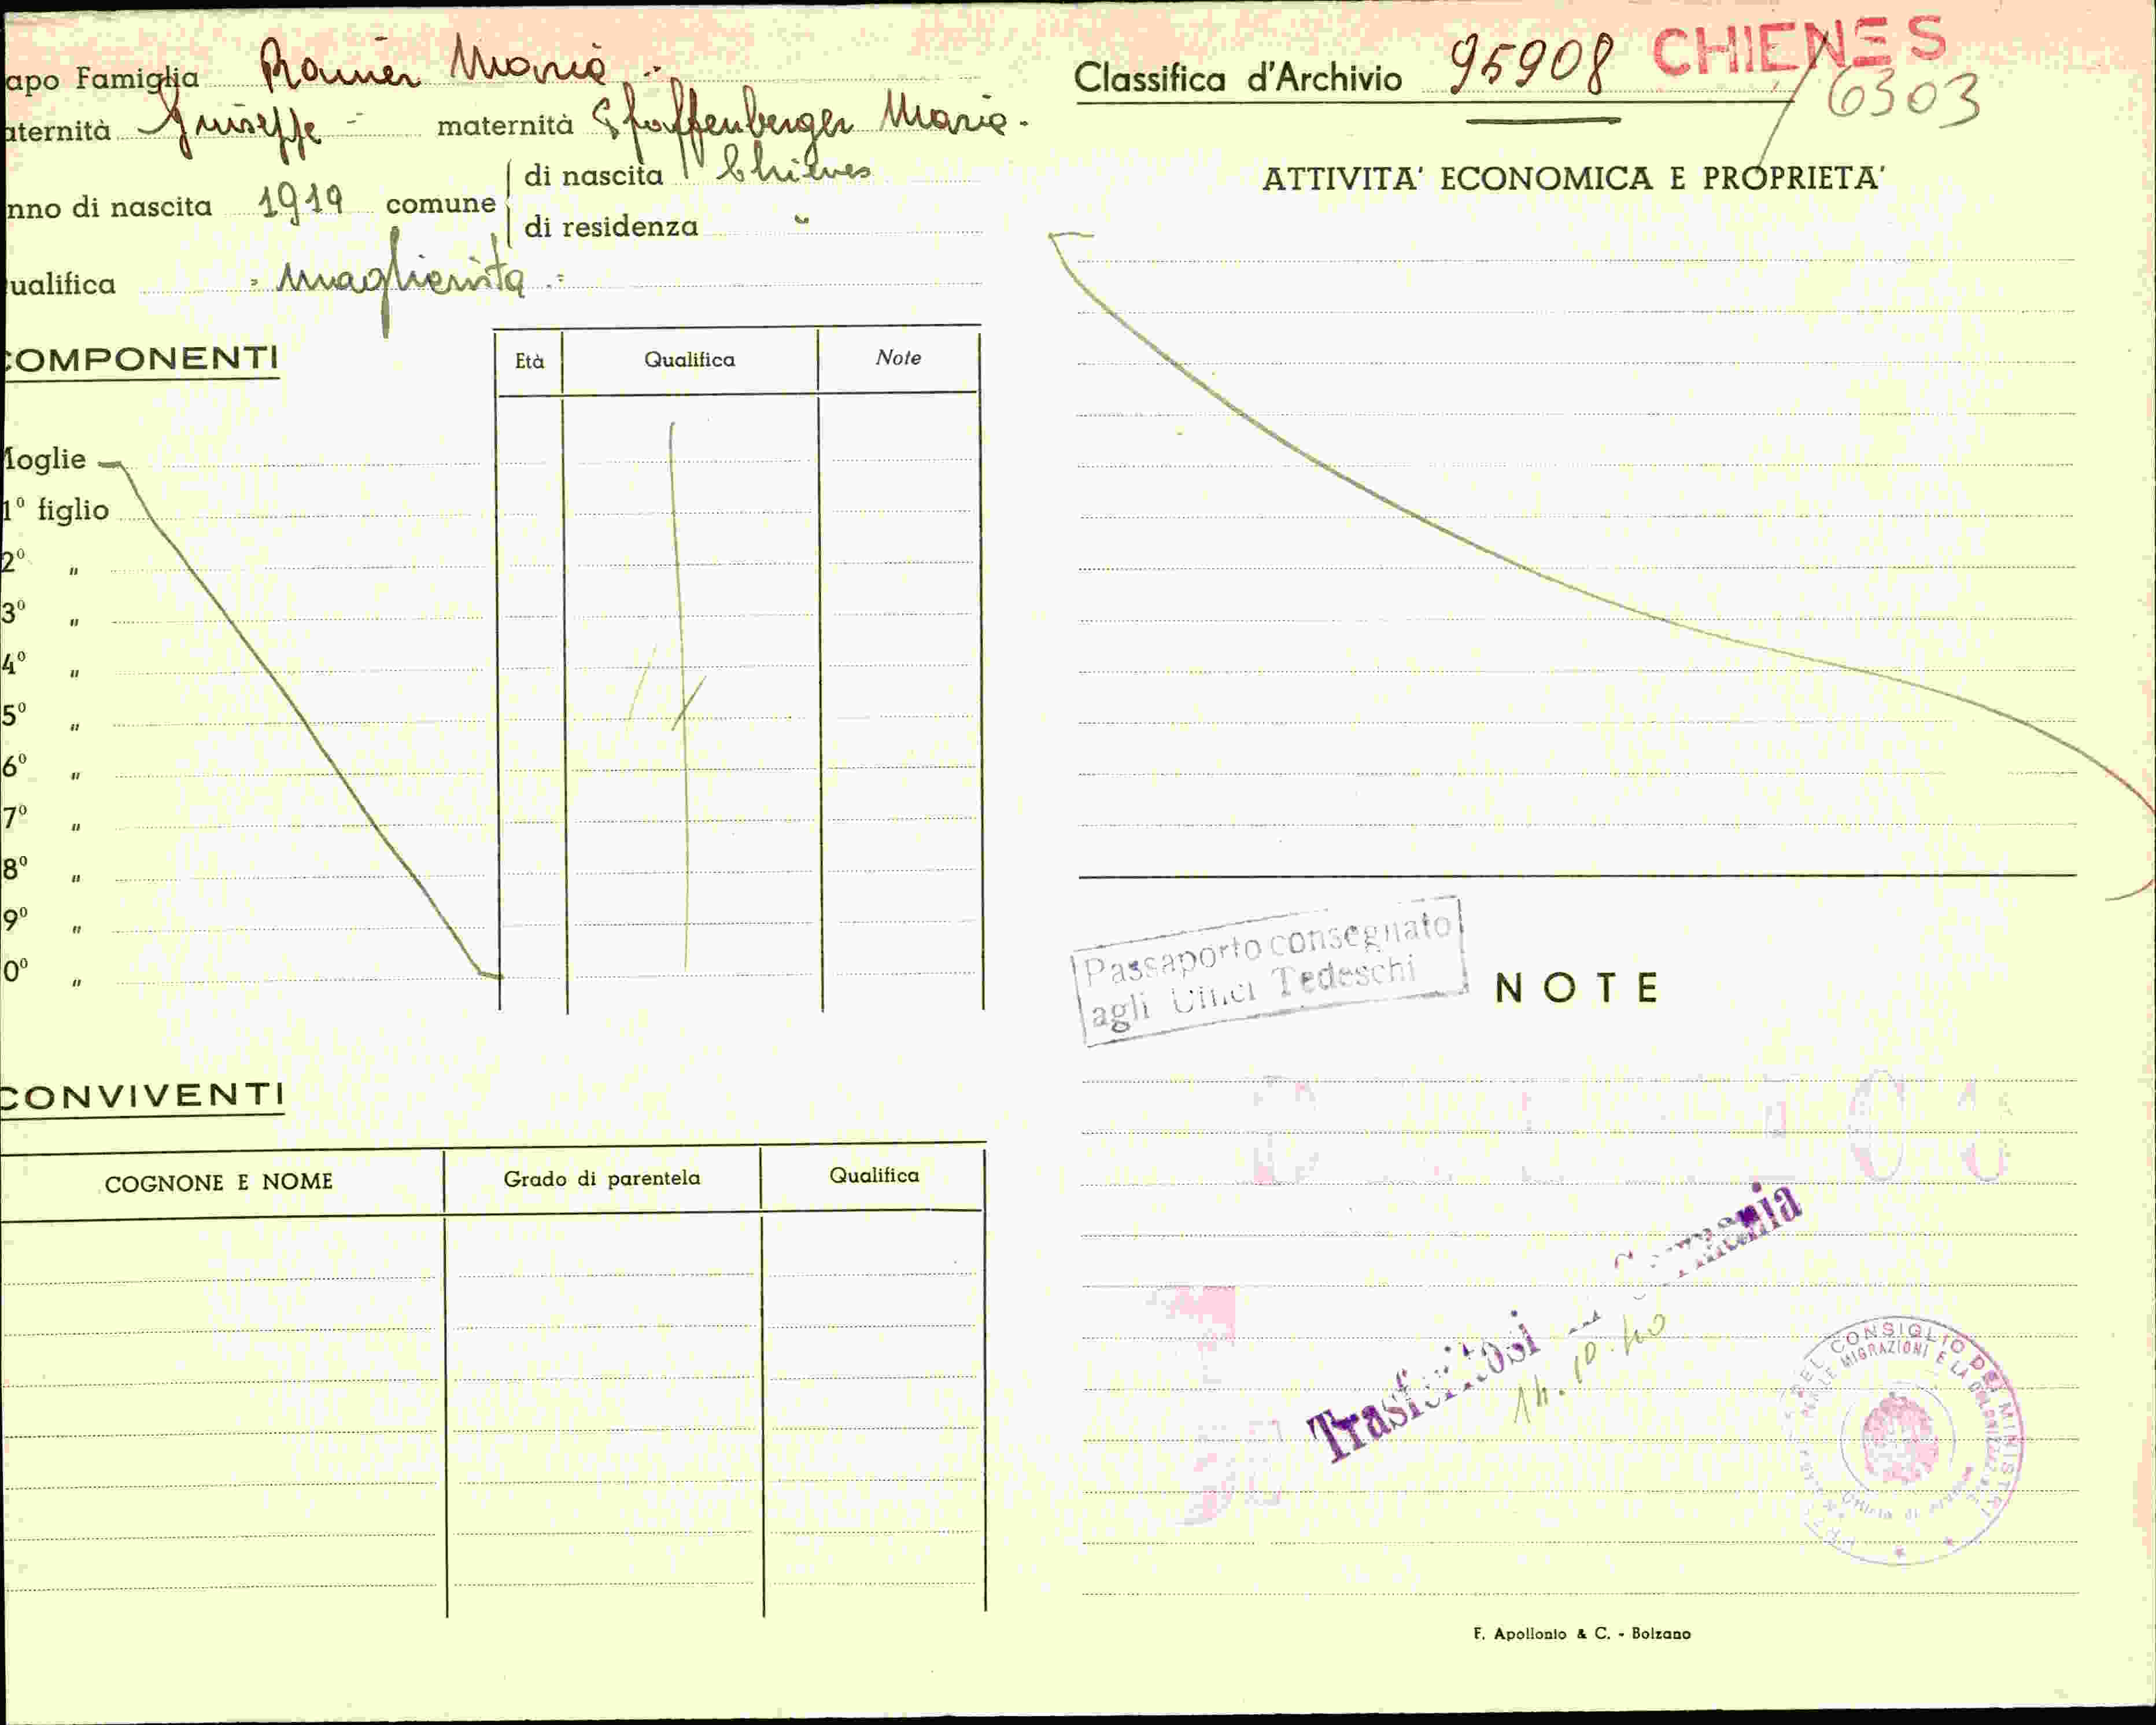 apo Famiglia Rainer Maria
aternità Giuseppe - maternità Pfaffenberger Maria -
nno di nascita 1919 comune di nascita Chienes
di residenza "
ualifica = maglierista =
COMPONENTI
Età Qualifica Note
Moglie
1º figlio
2º "
3º "
4º "
5º "
6º "
7º "
8º "
9º "
0º "
CONVIVENTI
COGNONE E NOME Grado di parentela Qualifica
Classifica d'Archivio 95908 CHIENES
/6303
ATTIVITA' ECONOMICA E PROPRIETA'
Passaporto consegnato
agli Uffici Tedeschi
NOTE
Trasferitosi in Germania
14.10.40
DEL CONSIGLIO DEI MINISTRI
PER LE MIGRAZIONI E LA COLONIZZAZIONE
F. Apollonio & C. - Bolzano